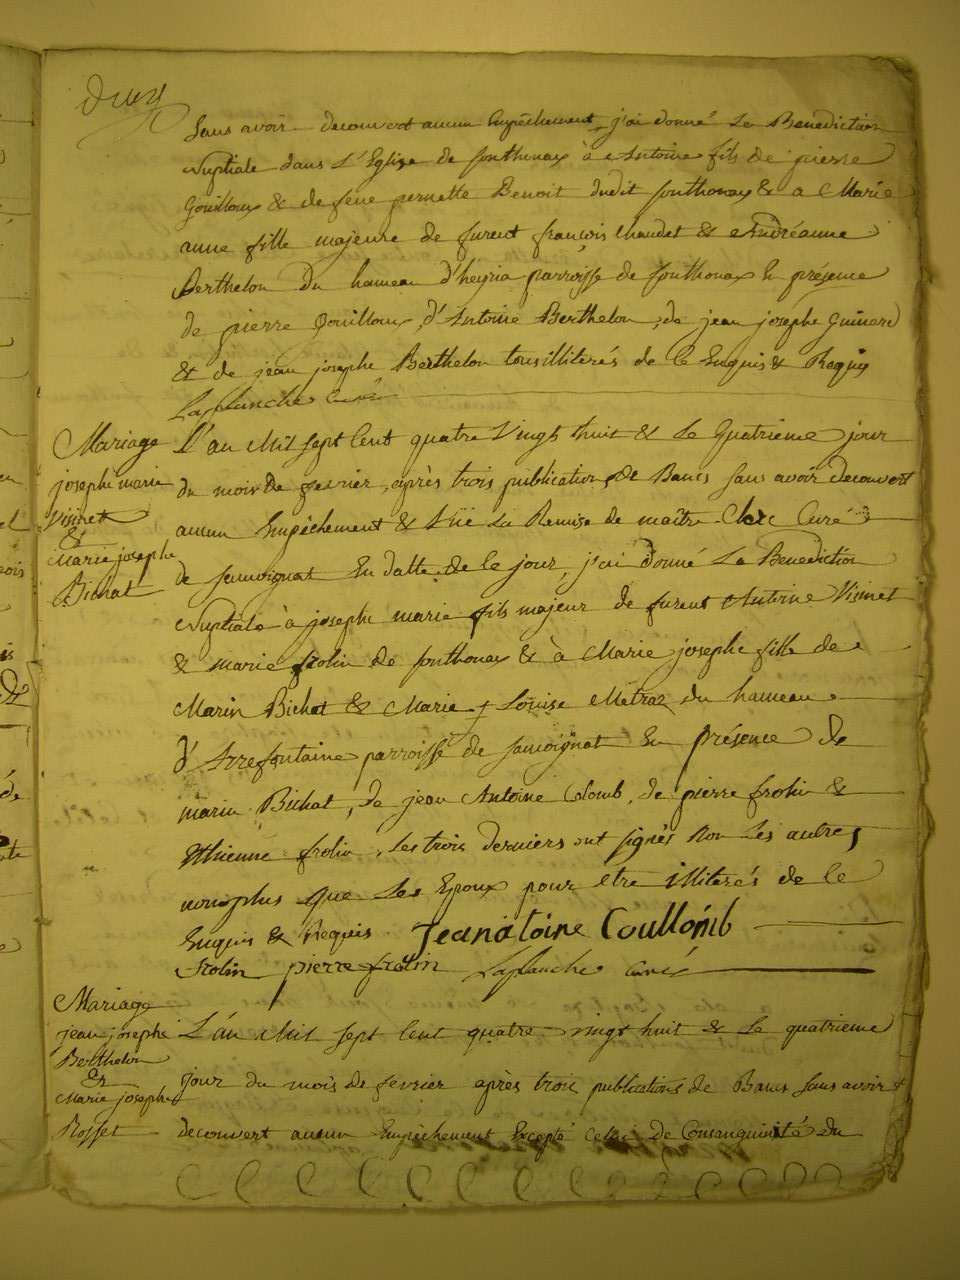 sans avoir decouvert aucun Empêchement, j'ai donné La Benediction
Nuptiale dans L'Eglise de fonthonax à Antoine fils de pierre
Gouilloux & de feue pernette Benoit dudit fonthonax & a Marie
anne fille majeure de furent françois Chaudet & Andréanne
Berthelon du hameau d'heyria parroisse de fonthonax En présence
de pierre Gouilloux, d'Antoine Berthelon, de jean joseph
& de jean joseph Berthelon tous illiterés de ce Enquis & Requis
Laplanche Curé
Mariage
joseph marie
Visinet
&
Marie josephe
Bichat
L'an Mil sept Cent quatre Vingt huit & Le Quatrieme jour
du mois de fevrier, après trois publications de Bancs sans avoir decouvert
aucun Empêchement & Vüe La Remise de maître Clerc Curé
de samoignat En datte de ce jour, j'ai donné La Benediction
Nuptiale à joseph marie fils majeur de furent Antoine Visinet
& marie frolin de fonthonax & à Marie josephe fille de
Marin Bichat & Marie Louise Métraz du hameau
d'Arrefontaine parroisse de samoignat En présence de
marin Bichat, de jean Antoine Colomb, de pierre frolin &
Ethienne frolin, Les trois derniers ont signés Non Les autres
nonplus que Les Epoux pour etre illiterés de ce
Enquis & Requis Jeanatoine Coullomb
frolin pierre frolin Laplanche curé
Mariage
jean joseph
Berthelon
&
Marie josephe
Rosset
L'an Mil sept Cent quatre vingt huit & Le quatrieme
jour du mois de fevrier après trois publications de Bans sans avoir
decouvert aucun Empêchement Excepté Celui de Consanguinité du